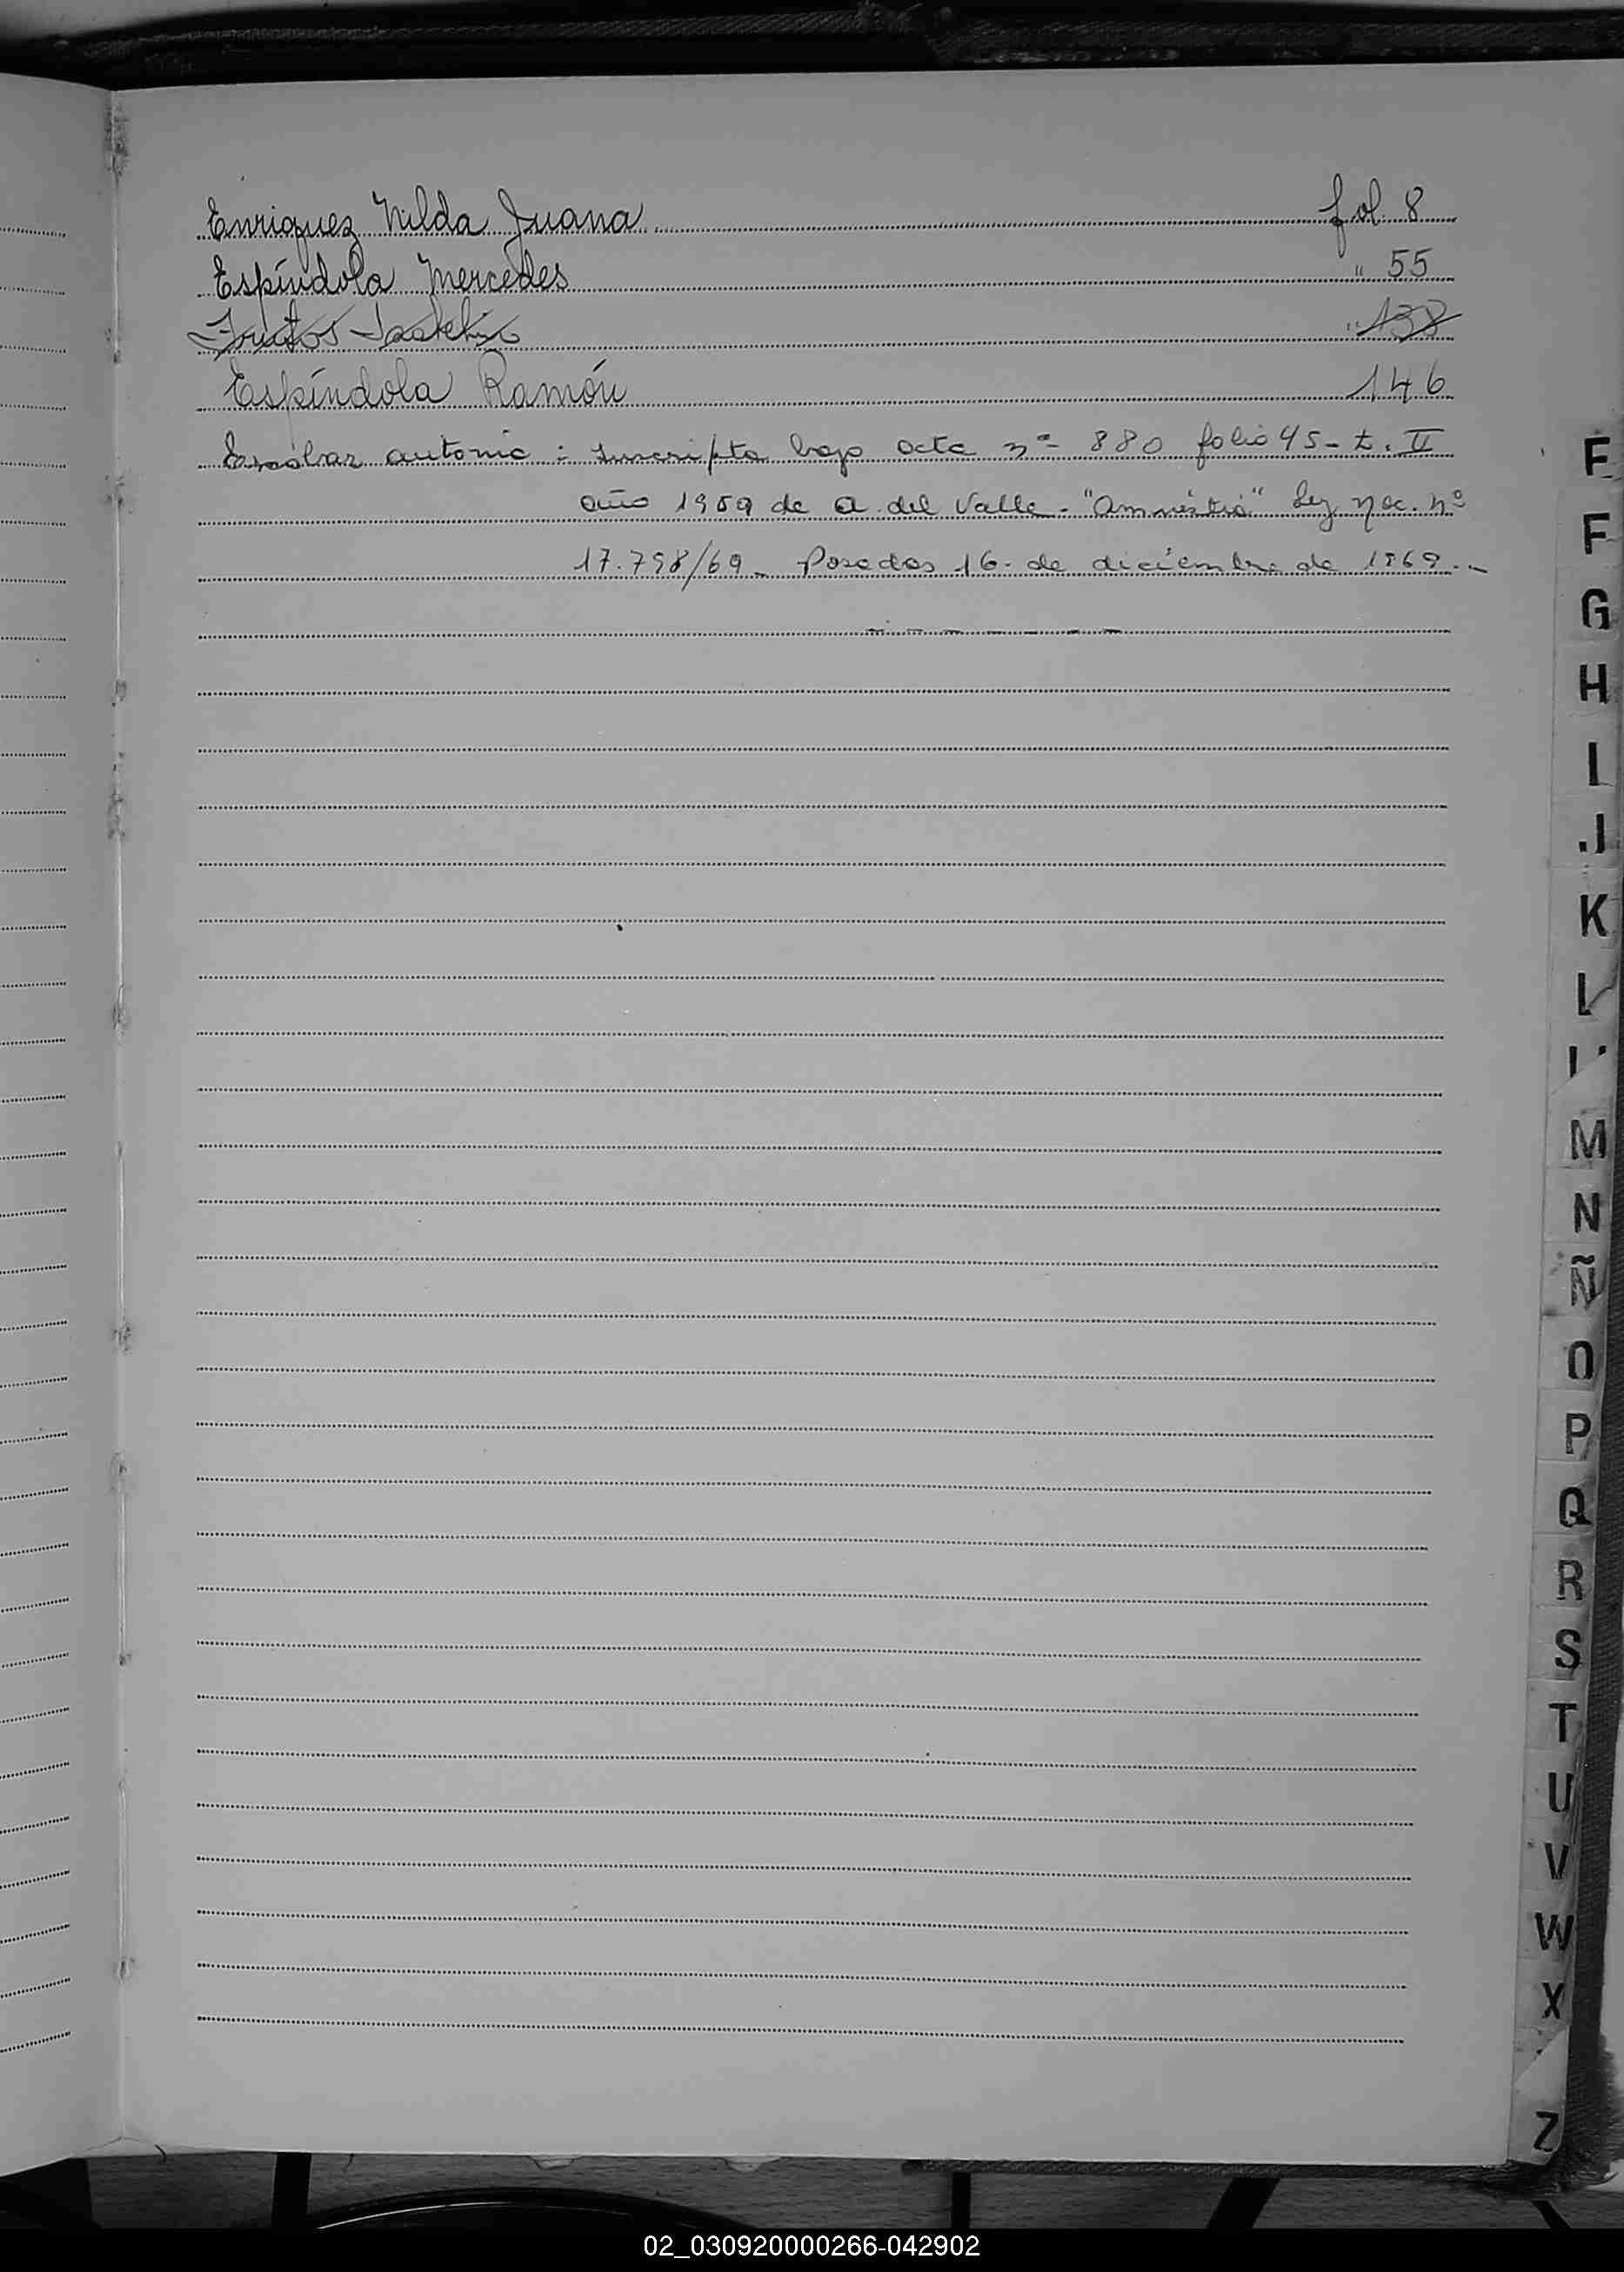 Enriquez Nilda Juana fol 8
Espíndola Mercedes " 55
" 138
Espíndola Ramón 146
Escobar Antonia : Inscripta bajo acta nº 880 folio 45 - t. II
año 1959 de A. del Valle - "Amnistía" Ley Nac. Nº
17.798/69 - Posadas 16 - de diciembre de 1969 . -
E
F
G
H
I
J
K
L
M
N
Ñ
O
P
Q
R
S
T
U
V
W
X
Z
02_030920000266-042902